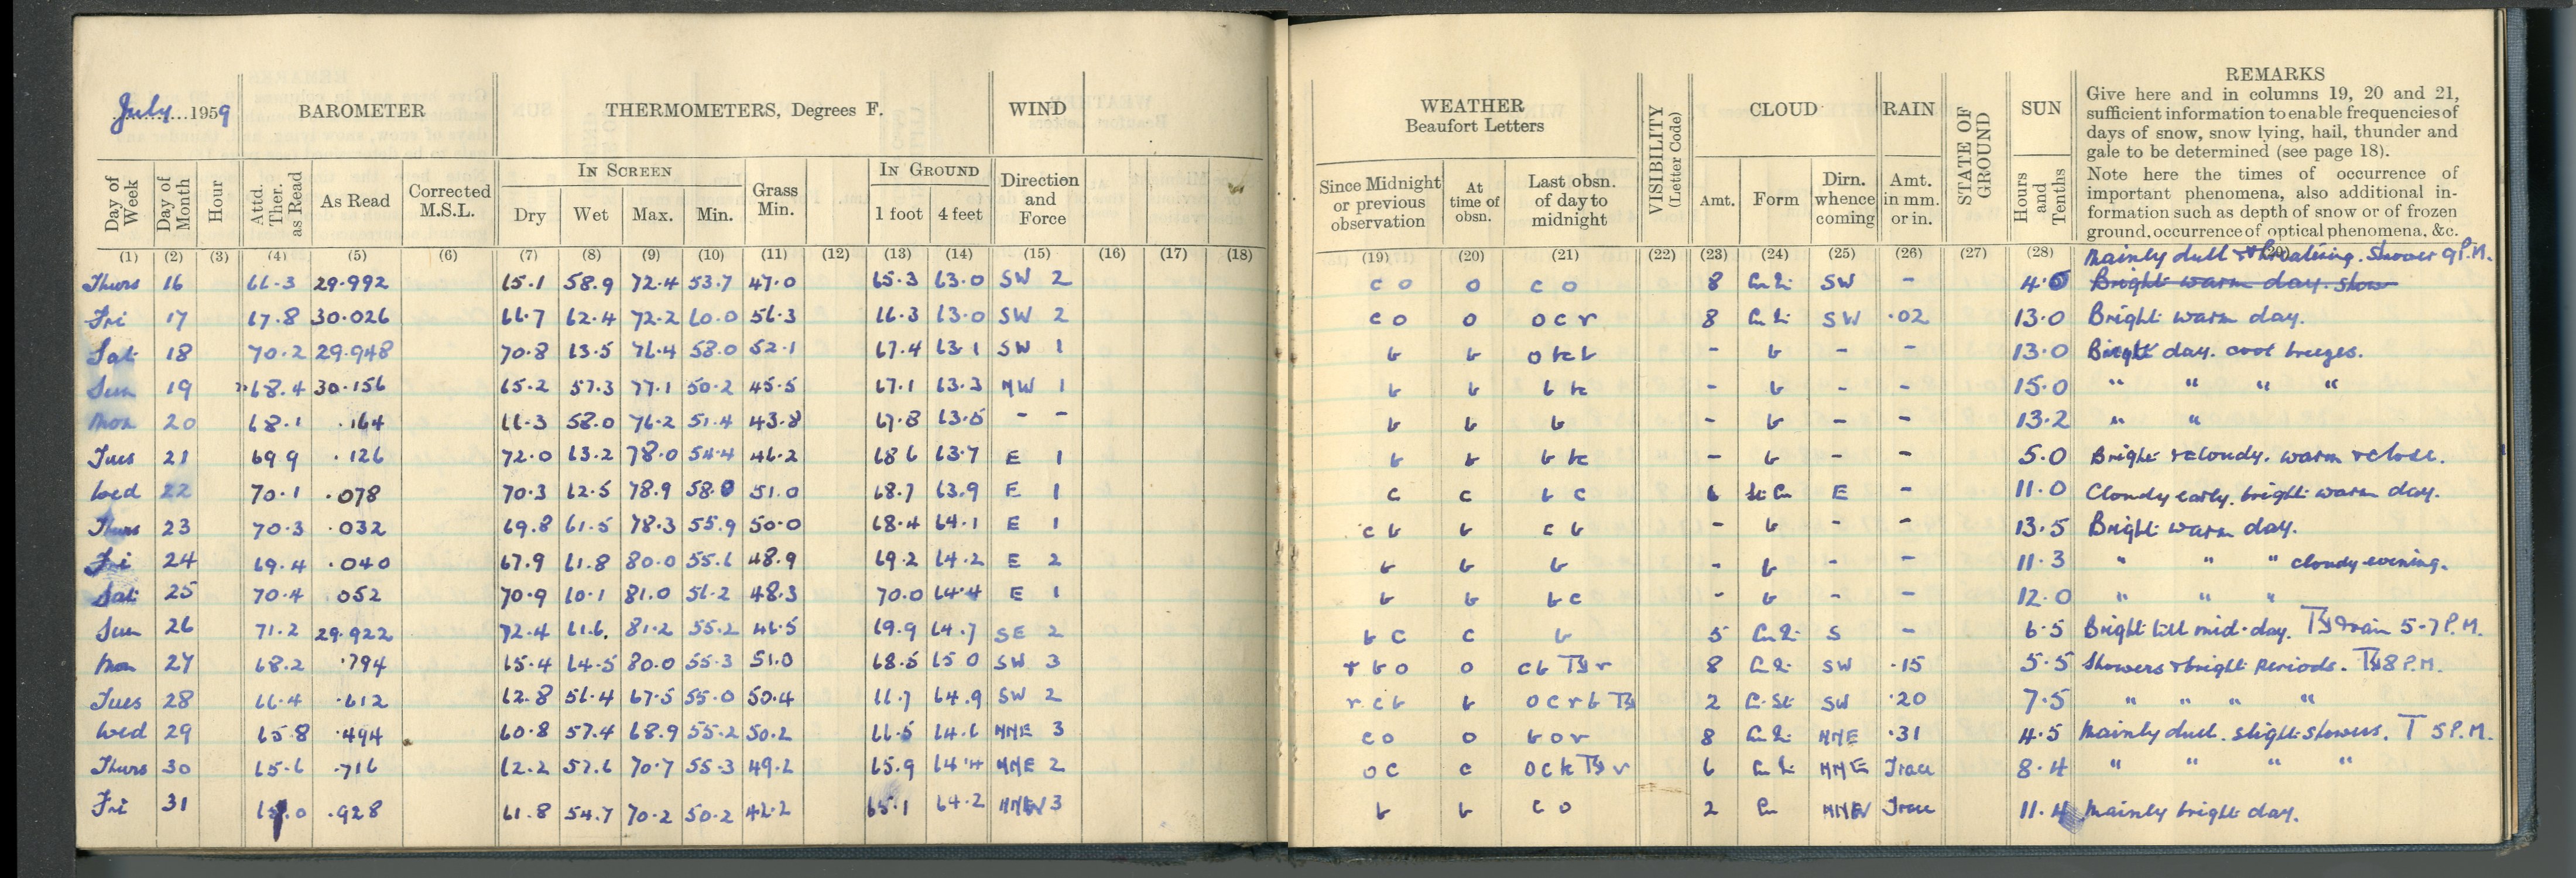 July 1959 BAROMETER THERMOMETERS, Degrees F. WIND
WEATHER Beaufort Letters VISIBILITY (Letter Code) CLOUD RAIN STATE OF GROUND SUN REMARKS
Give here and in columns 19, 20 and 21,
sufficient information to enable frequencies of
days of snow, snow lying, hail, thunder and
gale to be determined (see page 18).
Note here the times of occurrence of
important phenomena, also additional in-
formation such as depth of snow or of frozen
ground, occurrence of optical phenomena, &c.
IN SCREEN IN GROUND
Day of Week Day of Month Hour Attd. Ther. as Read As Read Corrected M.S.L. Dry Wet Max. Min. Grass Min. 1 foot 4 feet Direction and Force
Since Midnight or previous observation At time of obsn. Last obsn. of day to midnight Amt. Form Dirn. whence coming Amt. in mm. or in. Hours and Tenths
(1) (2) (3) (4) (5) (6) (7) (8) (9) (10) (11) (12) (13) (14) (15) (16) (17) (18)
(19) (20) (21) (22) (23) (24) (25) (26) (27) (28) (29)
Mainly dull & threatening. Shower 9 P.M.
Thurs 16 66.3 29.992 65.1 58.9 72.4 53.7 47.0 65.3 63.0 SW 2 c o o c o 8 Cu SW - 4.0 Bright warm day. show
Fri 17 67.8 30.026 66.7 62.4 72.2 60.0 56.3 66.3 63.0 SW 2 c o o o c r 8 Cu SW .02 13.0 Bright warm day.
Sat 18 70.2 29.948 70.8 63.5 76.4 58.0 52.1 67.4 63.1 SW 1 b b o bc b - b - - 13.0 Bright day. cool breezes.
Sun 19 68.4 30.156 65.2 57.3 77.1 50.2 45.5 67.1 63.3 NW 1 b b b bc - b - - 15.0 " " " "
Mon 20 68.1 .164 66.3 58.0 76.2 51.4 43.8 67.8 63.5 - - b b b - b - - 13.2 " "
Tues 21 69 9 .126 72.0 63.2 78.0 54.4 46.2 68 6 63.7 E 1 b b b bc - b - - 5.0 Bright & cloudy. warm & close.
Wed 22 70.1 .078 70.3 62.5 78.9 58.0 51.0 68.7 63.9 E 1 c c b c 6 St Cu E - 11.0 Cloudy early. bright warm day.
Thurs 23 70.3 .032 69.8 61.5 78.3 55.9 50.0 68.4 64.1 E 1 c b b c b - b - - 13.5 Bright warm day.
Fri 24 69.4 .040 67.9 61.8 80.0 55.6 48.9 69.2 64.2 E 2 b b b - b - - 11.3 " " " cloudy evening.
Sat 25 70.4 052 70.9 60.1 81.0 56.2 48.3 70.0 64.4 E 1 b b b c - b - - 12.0 " " "
Sun 26 71.2 29.922 72.4 61.6. 81.2 55.2 46.5 69.9 64.7 SE 2 b c c b 5 Cu S - 6.5 Bright till mid-day. rain 5-7 P.M.
Mon 27 68.2 .794 65.4 64.5 80.0 55.3 51.0 68.5 65 0 SW 3 r b o o c b r 8 Cu SW .15 5.5 Showers & bright periods. 8 P.M.
Tues 28 66.4 .612 62.8 56.4 67.5 55.0 50.4 66.7 64.9 SW 2 r c b b o c r b 2 SW .20 7.5 " " " "
Wed 29 65.8 .494 60.8 57.4 68.9 55.2 50.2 66.5 64.6 NNE 3 c o o b o r 8 Cu NNE .31 4.5 Mainly dull. slight showers. T 5 P.M.
Thurs 30 65.6 .716 62.2 57.6 70.7 55.3 49.2 65.9 64.4 NNE 2 o c c o c bc r 6 Cu NNE Trace 8.4 " " " "
Fri 31 .0 .928 61.8 54.7 70.2 50.2 42.2 65.1 64.2 3 b b c o 2 Cu Trace 11.4 Mainly bright day.